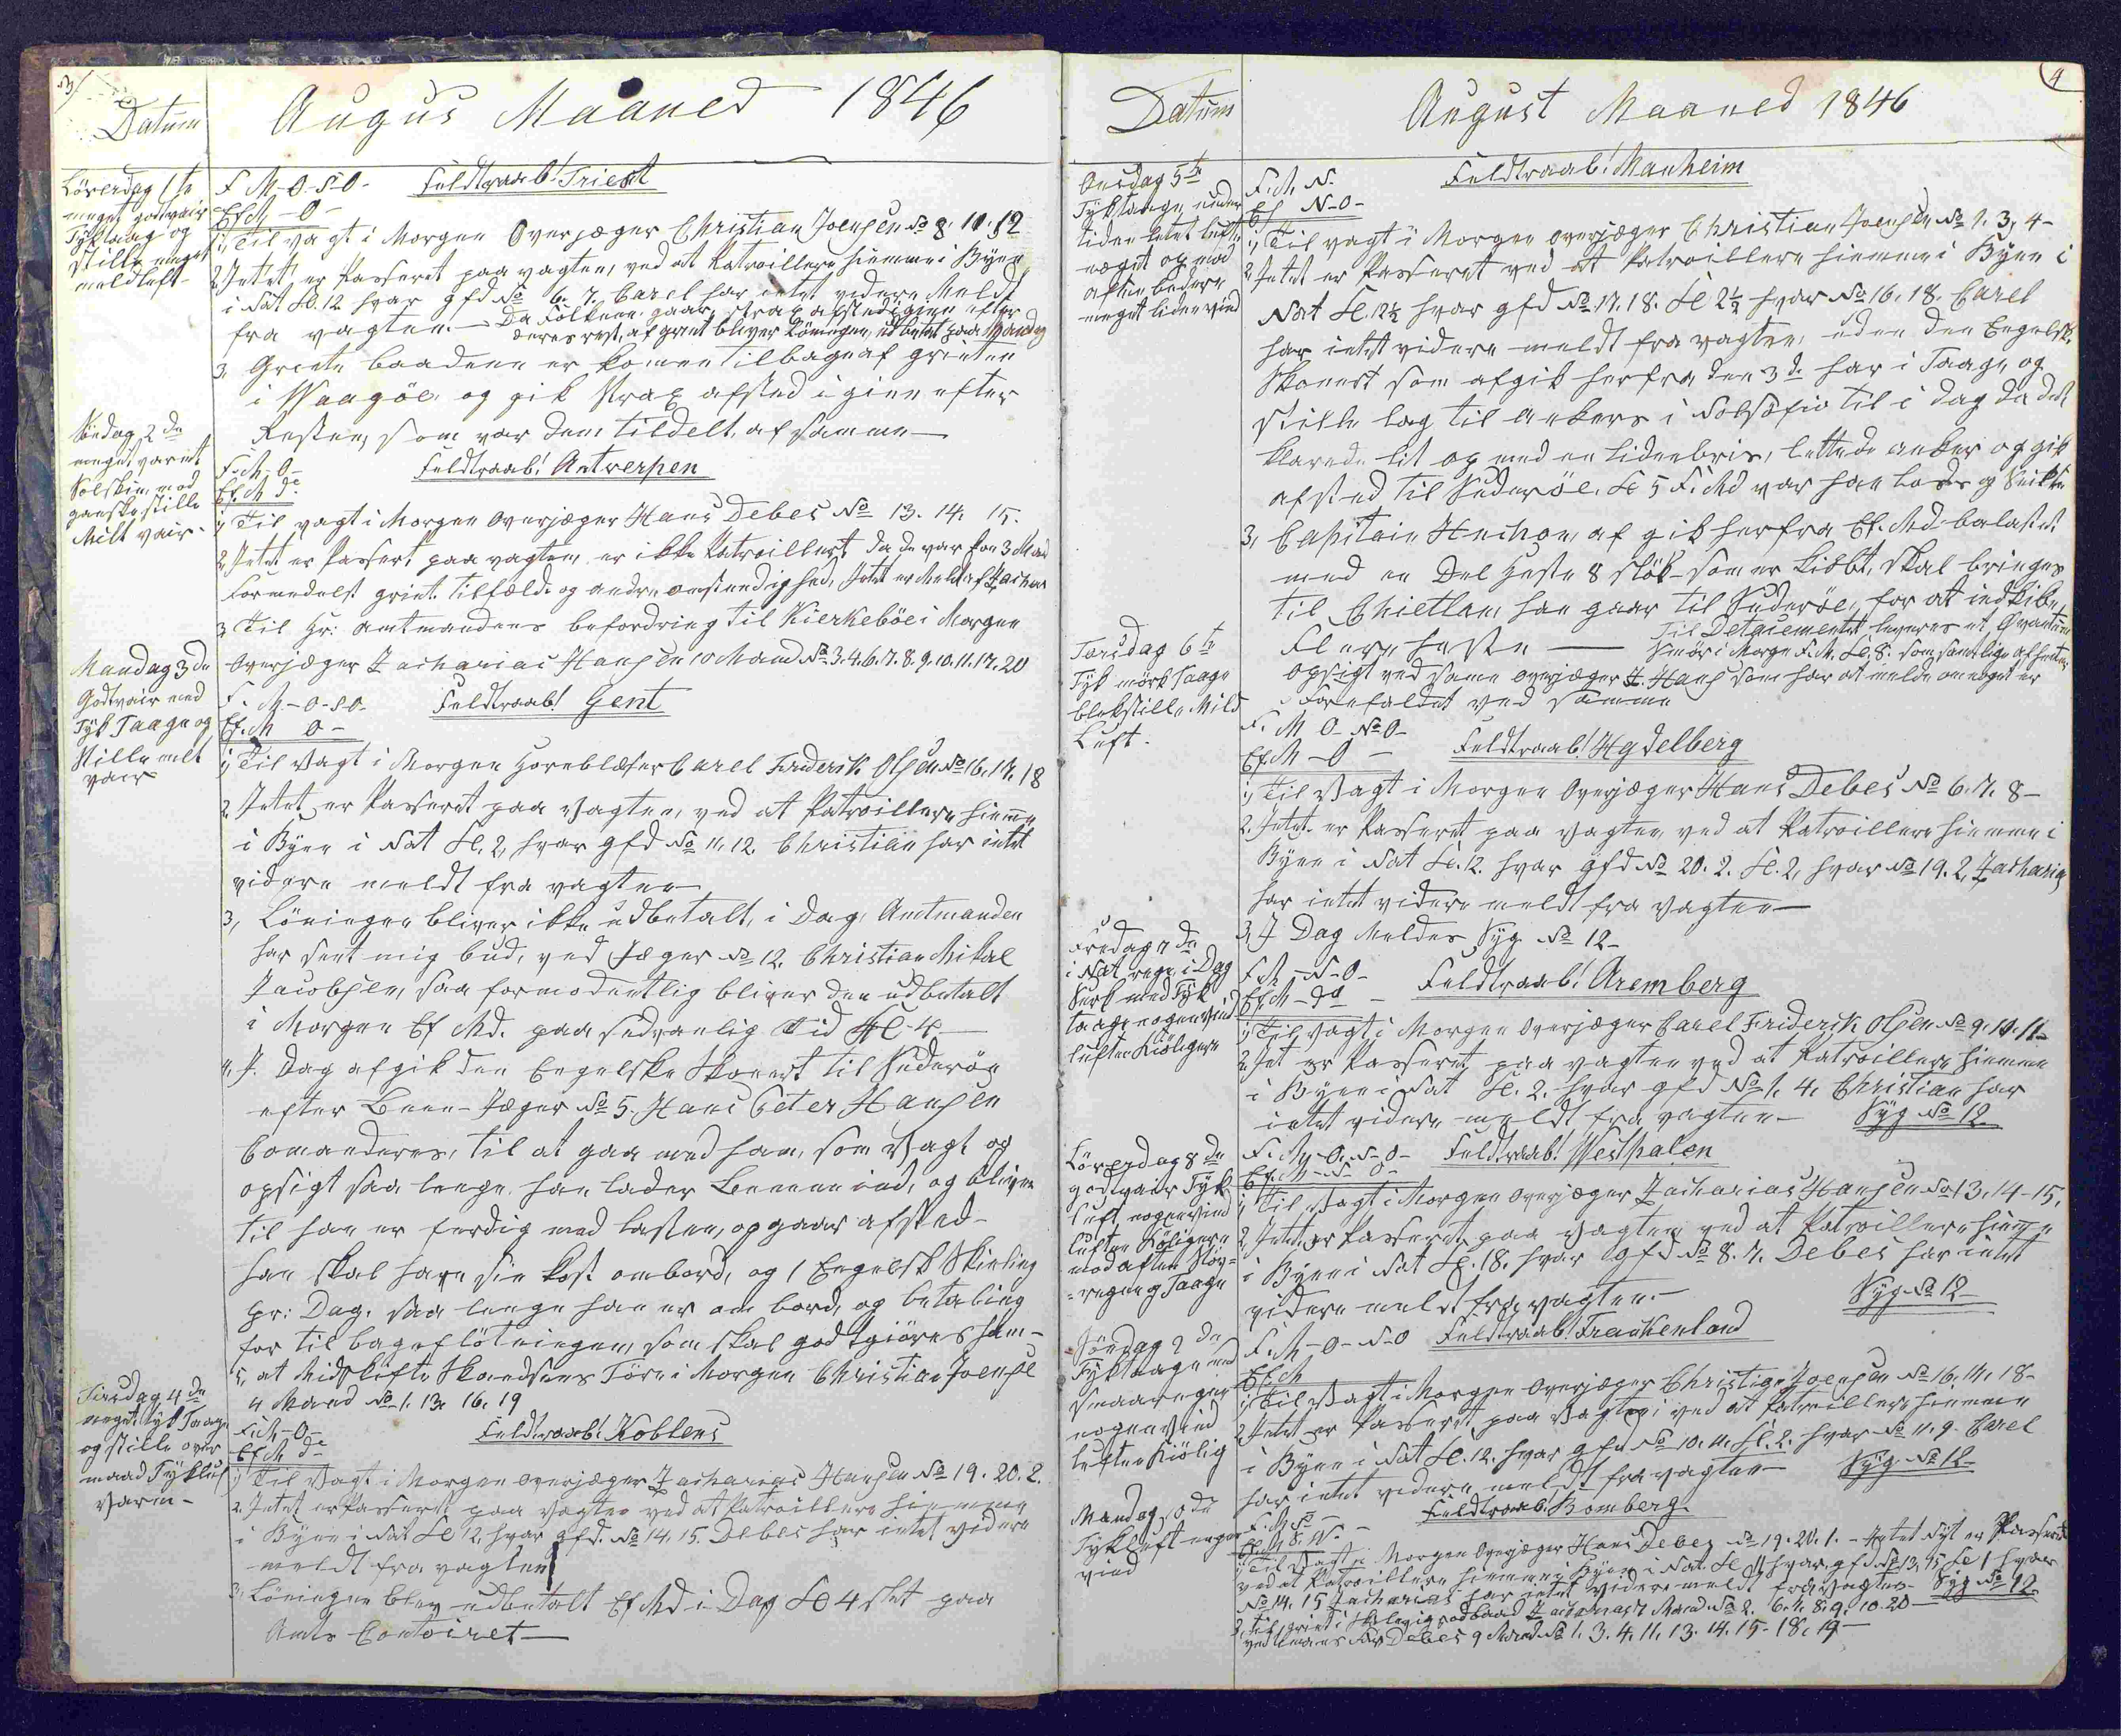 3/
Datum
Augus Maaned 1846
Löverdag 1te
meget godtvair
Tyktaag og
stille meget
meldluft
F M-O-S-O- Feldtraab! Triest
Ef M-O-
1, Til vagt i Morgen Overjæger Christian Joensen No 8. 10. 12
2, Intet er Passeret paa vagten, ved at Patroillere hiemme i Byen
i Nat Kl. 12 hvar gfd No 6. 7. Carel har intet videre Meldt
fra vagten. - Da Folkene gaar strax afsted igien efter
deres rest, af grint bliver Löningen udbetalt paa Mandag
3, Grinte baadene er komen tilbage af grinten
i Waagöe, og gik strax afsted igien efter
Resten, som var dem tildelt, af samme
Söndag 2de
meget varmt
Solskin, mod
ganske stille
Milt vair-
F.M-O- Feldtraab! Antverpen
Ef.M do
1, Til vagt i Morgen Overjæger Hans Debes No 13. 14. 15.
2, Intet er Passert, paa vagten, er ikke Patroillert, da de var kon 3 Mand
formedelst grint. tilfælde og andre omstendighed, Intet er Meldt af Zacharias
3 Til Hr: Amtmandens befordring til Kierkeböe i Morgen
Overjæger Zacharias Hansen 10 Mand No 3. 4. 6. 7. 8. 9. 10. 11. 17. 20
Mandag 3de
Godtvair med
Tyk Taage og
Stille melt
vair
F. M-O-S.O. Feldtraab! Gent
Ef.M O-
1, Til Vagt i Morgen Horneblæser Carel Frederik Olsen No 16. 17. 18
2, Intet er Passeret paa Vagten, ved at Patroillere hieme
i Byen i Nat Kl. 2, hvar gfd No 11. 12. Christian har intet
videre meldt fra vagten
3, Löningen bliver ikke udbetalt, i Dag. Amtmanden
har sent mig bud, ved Jæger No 12. Christian Mikal
Jacobsen, saa formodentlig bliver den udbetalt
i Morgen Ef Md. paa sedvanlig Tid Kl 4
4, I Dag afgik den Engelske Skonert til Suderöe
efter Been - Jæger No 5. Hans Peter Hansen
Comanderes, til at gaa med ham, som Vagt og
opsigt saa lenge han lader Beenene ind, og bliver
til han er ferdig med lasten, og gaar afsted-
han skal have sin kost ombord, og 1 Engelsk Skieling
pr: Dag, saa lenge han er om bord, og betaling
for tilbageflötningen, som skal godtgiöres ham-
5, at Midskifte Skandsens Törv i Morgen Christian Joensen
4 Mand No 1. 13. 16. 19
Tirsdag 4de
meget Tyk Taage
og stille over
maad Tykluft
Varm-
F.M-O- Feldtraab! Koblens
Ef.M do
1, Til Vagt i Morgen Overjæger Zacharias Hansen No 19. 20. 2.
2, Intet er Passeret paa Vagten ved at Patroillere hiemme
i Byen i Nat Kl 12, hvar gfd. No 14. 15. Debes har intet videre
meldt fra vagten
3, Löningen blev udbetalt Ef Md i Dag Kl 4 slet paa
Amts Contoiret
4
Datum
August Maaned 1846
Onsdag 5te
Tyktaage under
tiden letet luften
noget og mod
aften bedere
meget liden vind
F.M. N. Feldtraab! Manheim
Ef N-O-
1, Til vagt i Morgen Overjæger Christian Joensen No 1. 3. 4-
2, Intet er Passeret ved at Patroillere hiemme i Byen i
Nat Kl. 12½ hvar gfd No 17. 18. Kl 2½ hvar No 16. 18. Carel
har intet videre meldt fra vagten, uden den Engelsk.
Skonert som afgik herfra den 3de har i Taage og
Stille lag til ankers i Nolsöfior til i dag da det
klarede lit op med en liden bris, lettede anker og gik
afsted til Suderöe. Kl 5 F.Md var han
3, Capitain afgik herfra Ef. Md balastet
med en Del Heste 8 stök - som er kiöbt, skal bringes
til Chietlan, han gaar til Suderöe, for at indkibe
Flere heste - Til Detacementet leveres et Qvantum
Smör i Morgen F.M. Kl. 8. som samtlige afhenter,
opsigt ved same overjæger Z. Hans som har at melde om noget er
Forefaldet ved samme
Torsdag 6te
Tyk mörk Taage
blekstille Mild
Luft.
F. M O- No O-
Ef M-O- Feldtraab! Hydelberg
1, Til Vagt i Morgen Overjæger Hans Debes No 6. 7. 8-
2, Intet er Passeret paa Vagten ved at Patroillere hiemme i
Byen i Nat Kl. 12. hvar gfd No 20. 2. Kl. 2, hvar No 19. 2, Zacharias
har intet videre meldt fra Vagten
3, I Dag Meldes Syg No 12-
Fredag 7de
i Nat regn i Dag
mod Tyk
taage nogen vind
luften Kiöligere
F.M-N-O- Feldtraab! Aremberg
Ef.M-do-
1, Til Vagt i Morgen Overjæger Carel Friderik Olsen No 9. 10. 11-
2, Intet er Passeret paa vagten ved at Patroillere hiemme
i Byen i Nat Kl. 2. hvar gfd No 1. 4. Christian har
intet videre meldt fra vagten- Syg No 12.
Löverdag 8de
godtvair Tyk
luft nogen vind
luften Köligere
mod aften
regn og Taage
F.M-O-N-O- Feldtraab! Westhalen
Ef.M-N-O-
1, Til Vagt i Morgen Overjæger Zacharias Hansen No 13. 14-15.
2, Intet er Passeret paa Vagten ved at Patroillere hieme
i Byen i Nat Kl. 18. hvar gfd No 8. 7. Debes har intet
videre meldt fra vagten- Syg No 12
Söndag 9de
Tyktaage med
smaaregn
nogen vind
luften Kiölig
F.M-O-N-O Feldtraab! Frankenland
Ef.M
1, Til Vagt i Morgen Overjæger Christian Joensen No 16. 17. 18-
2, Intet er Passeret paa Vagten ved at Patroillere hiemme
i Byen i Nat Kl. 12. hvar gfd No 10. 11. Kl. 2. hvar No 11. 9. Carel
har intet videre meldt fra vagten- Syg No 12-
Mandag 10de
Tykluft nogen
vind
F.M S- Feldtraab! Bomberg
Ef.M S.W.
1, Til Vagt i Morgen Overjæger Hans Debes No 19. 20. 1.- Intet Nyt er Passeret
ved at Patroillere hiemme i Byen i Nat. Kl 11 hvar gfd No 13. 15 Kl 1 hvar
No 14. 15 Zacharias har intet videre meldt fra Vagten- Syg No 12.
2, til grint i Zacharias 7 Mand No 2. 6. 7. 8. 9. 10. 20
Debes 9 Mand No 1. 3. 4. 11. 13. 14. 15- 18. 19-